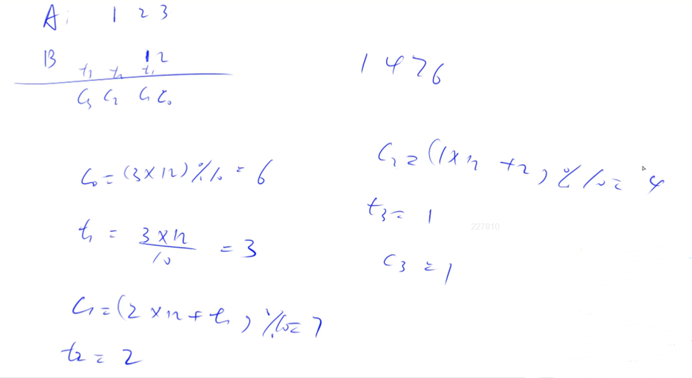 A: 1 2 3
B 12
t₃ t₂ t₁
C₃ C₂ C₁ C₀
1476
C₀ = (3×12)%10 = 6
t₁ = 3×12/10 = 3
C₁ = (2×12+t₁)%10=7
t₂ = 2
C₂ = (1×12+t₂)%10= 4
t₃ = 1
C₃ = 1
227810